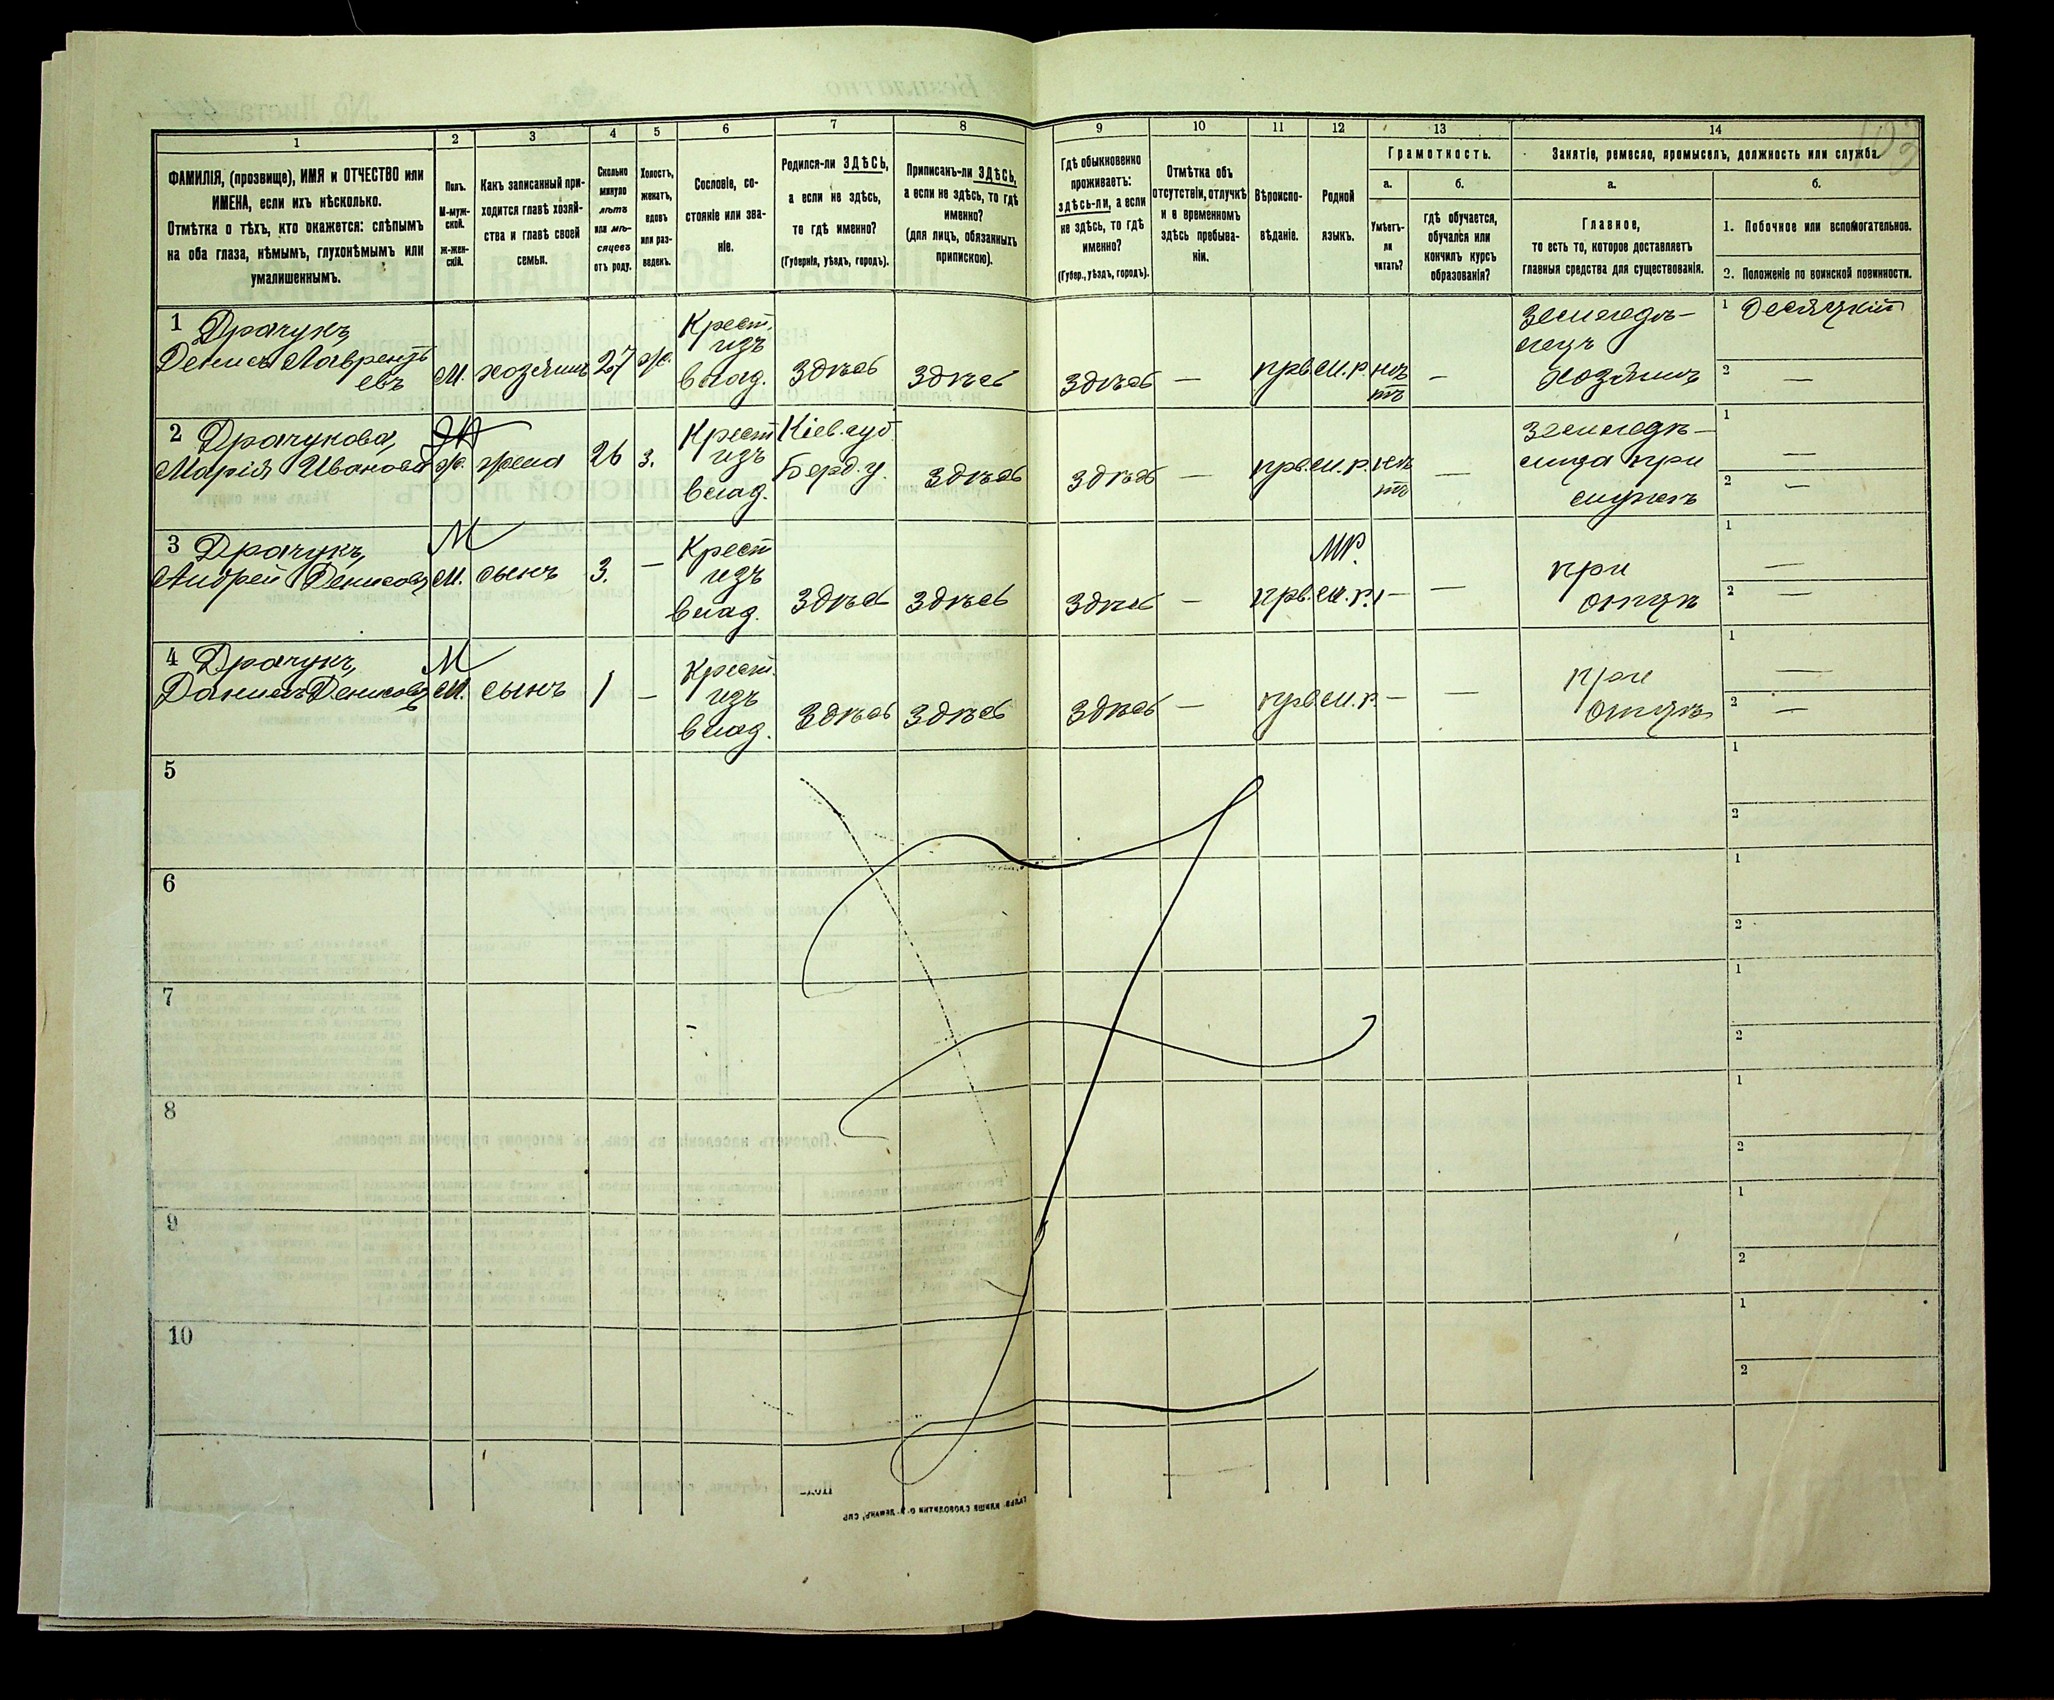 103
1 2 3 4 5 6 7 8 9 10 11 12 13 14
ФАМИЛІЯ, (прозвище), ИМЯ и ОТЧЕСТВО или
ИМЕНА, если ихъ нѣсколько.
Отмѣтка о тѣхъ, кто окажется: слѣпымъ
на оба глаза, нѣмымъ, глухонѣмымъ или
умалишеннымъ.
Полъ.
М-муж-
ской.
Ж-жен-
скій.
Какъ записанный при-
ходится главѣ хозяй-
ства и главѣ своей
семьи.
Сколько
минуло
лѣтъ
или мѣ-
сяцевъ
отъ роду.
Холостъ,
женатъ,
вдовъ
или раз-
веденъ.
Сословіе, со-
стояніе или зва-
ніе.
Родился-ли ЗДѢСЬ,
а если не здѣсь,
то гдѣ именно?
(Губернія, уѣздъ, городъ).
Приписанъ-ли ЗДѢСЬ,
а если не здѣсь, то гдѣ
именно?
(для лицъ, обязанныхъ
припискою).
Гдѣ обыкновенно
проживаетъ:
здѣсь-ли, а если
не здѣсь, то гдѣ
именно?
(Губер., уѣздъ, городъ).
Отмѣтка объ
отсутствіи, отлучкѣ
и о временномъ
здѣсь пребыва-
ніи.
Вѣроиспо-
вѣданіе.
Родной
языкъ.
Грамотность.
а. б.
Умѣетъ-
ли
читать?
гдѣ обучается,
обучался или
кончилъ курсъ
образованія?
Занятіе, ремесло, промыселъ, должность или служба
а. б.
Главное,
то есть то, которое доставляетъ
главныя средства для существованія.
1. Побочное или вспомогательное.
2. Положеніе по воинской повинности.
1 Драчукъ
Денисъ Лаврентъ
евъ
М. хозяинъ 27 ж.
Крест.
изъ
влад.
Здѣсь Здѣсь Здѣсь — прв. м.р. нѣ
тъ —
Земледѣ-
лецъ
Хозяинъ
1 Десяцкій
2 —
2 Драчукова,
Марія Иванова
ж. жена 26 з.
Крест
изъ
влад.
Кіев. губ.
Берд. у.
Здѣсь Здѣсь — прв. м.р. нѣ
тъ —
Земледѣ-
лица при
мужѣ
1 —
2 —
3 Драчукъ,
Андрей Денисовъ
М
М. сынъ 3. —
Крест
изъ
влад.
Здѣсь Здѣсь Здѣсь — прв. м.р. — —
МР.
при
отцѣ
1 —
2 —
4 Драчукъ,
Данилъ Денисовъ
М
М. сынъ 1 —
Крест.
изъ
влад.
Здѣсь Здѣсь Здѣсь — прв. м.р. — —
при
отцѣ
1 —
2 —
5 1
2
6 1
2
7 1
2
8 1
2
9 1
2
10 1
2